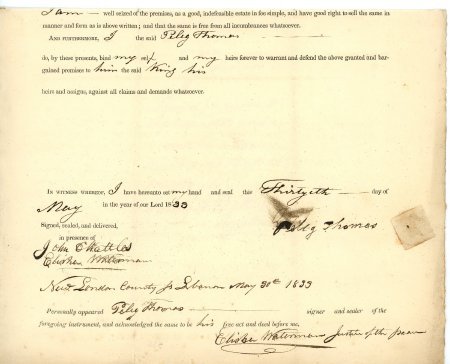 I am — well seized of the premises, as a good, indefeasible estate in fee simple, and have good right to sell the same in
manner and form as is above written; and that the same is free from all incumbrances whatsoever.
AND FURTHERMORE, I the said Peleg Thomas
do, by these presents, bind my self and my heirs forever to warrant and defend the above granted and bar-
gained premises to him the said King his
heirs and assigns, against all claims and demands whatsoever.
IN WITNESS WHEREOF, I have hereunto set my hand and seal this Thirtyeth — day of
May in the year of our Lord 1833
Signed, sealed, and delivered,
in presence of
Peleg Thomas
John C Wattles
Elisha Waterman
New London County ss Lebanon May 30th 1833
Personally appeared Peleg Thomas — signer and sealer of the
foregoing instrument, and acknowledged the same to be his free act and deed before me,
Elisha Waterman Justice of the Peace